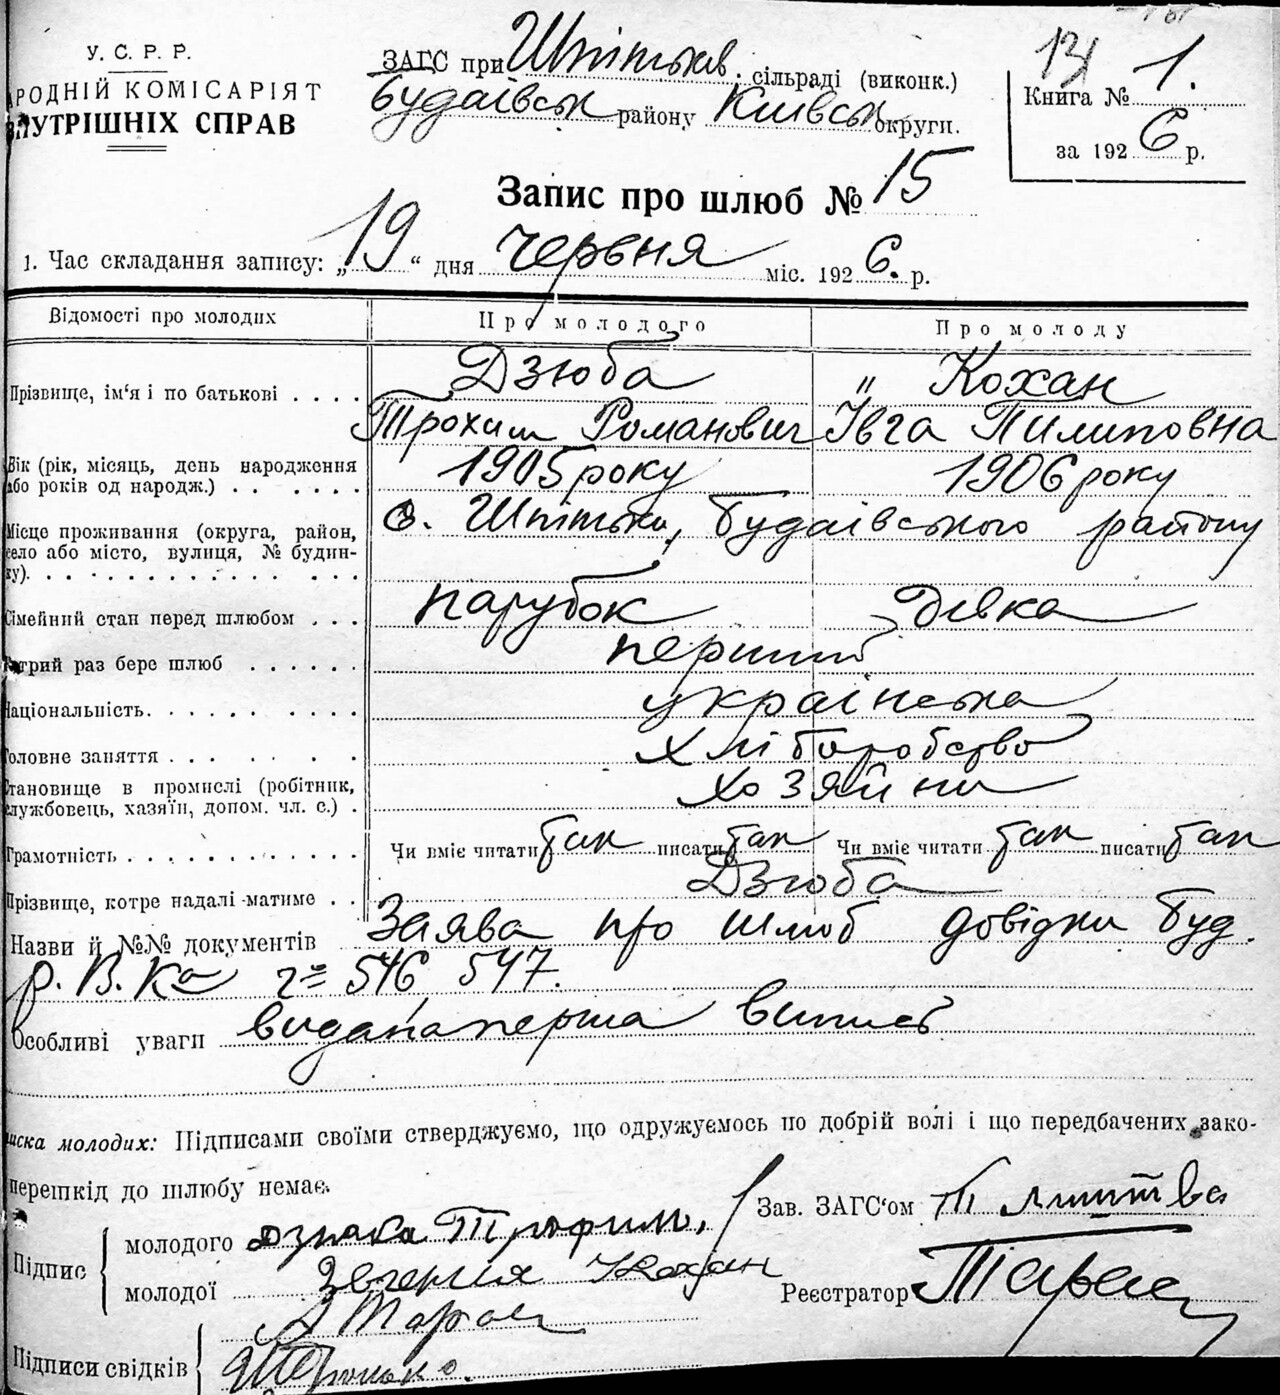 У. С. Р. Р.
РОДНІЙ КОМІСАРІЯТ
ВНУТРІШНІХ СПРАВ
ЗАГС при Шпітьків. сільраді (виконк.)
Будаівськ району Київськ округи.
131
Книга № 1.
за 1926 р.
Запис про шлюб № 15
1. Час складання запису: „19“ дня червня міс. 1926. р.
Відомості про молодих Про молодого Про молоду
Прізвище, ім'я і по батькові . . . . Дзюба „ Кохан
Трохим Романович Івга Пилиповна
Вік (рік, місяць, день народження або років од народж.) . . . . . . 1905 року 1906 року
Місце проживання (округа, район, село або місто, вулиця, № будинку). с. Шпітьки, Будаівського району
Сімейний стан перед шлюбом . . . парубок Дівка
Котрий раз бере шлюб . . . . . . перший
Національність. . . . . . . . . українська
Головне заняття . . . . . . . хліборобство
Становище в промислі (робітник, службовець, хазяїн, допом. чл. с.) . хозяйни
Грамотність . . . . . . . . . . . . Чи вміє читати так писати так Чи вміє читати так писати так
Прізвище, котре надалі матиме . . Дзюба
Назви й №№ документів Заява про шлюб довідки Буд.
р. В. Ка 546, 547.
Особливі уваги видана перша випись
иска молодих: Підписами своїми стверджуємо, що одружуємось по добрій волі і що передбачених зако-
перешкід до шлюбу немає.
Підпис
молодого Дзюба Трофим.
молодої Євгенія Кохан
Зав. ЗАГС'ом
Реєстратор Тарас
Підписи свідків